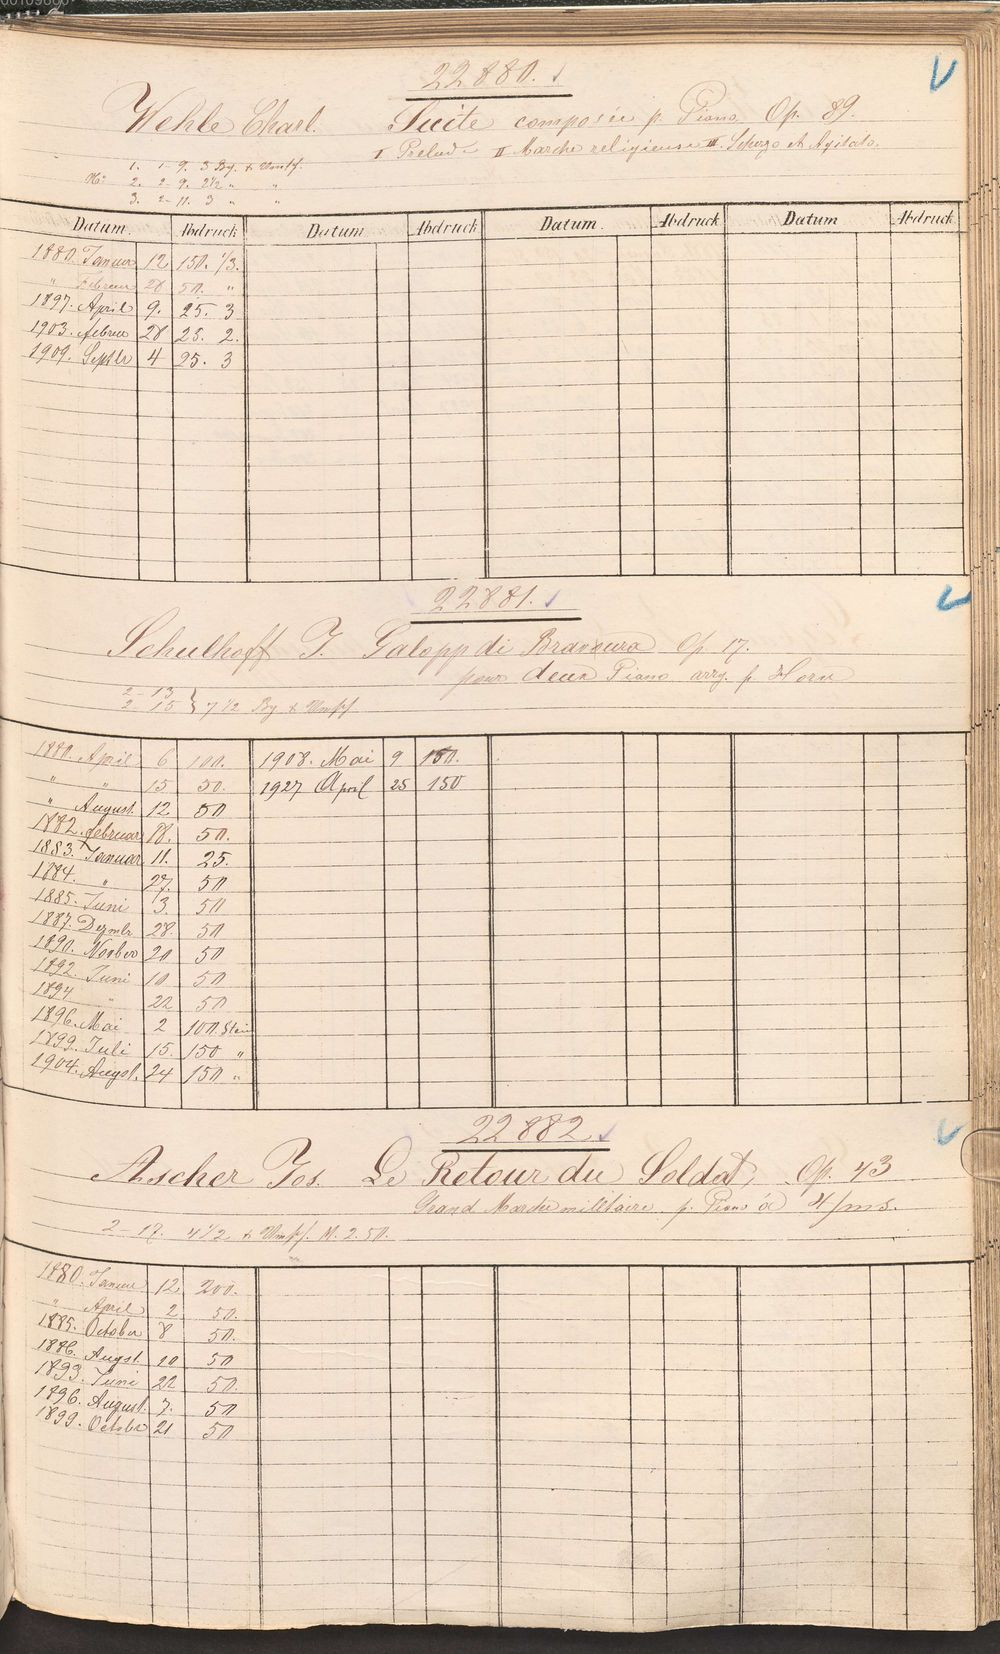 22880.
Wehle Charl. Suite composée p. Piano Op. 89.
I Prelude II Marche religieuse III. Scherzo et Agitato.
1. 1-9. 3 Bg. & Umpf.
No: 2. 2-9. 2½ " "
3. 2-11. 3 " "
Datum. Abdruck Datum Abdruck Datum. Abdruck Datum Abdruck
1880. Januar 12 150. 1/3.
" Februar 28 50. "
1897. April 9. 25. 3
1903. febru 28 25. 2.
1909. Septbr 4 25. 3
22881.
Schulhoff J. Galopp di Bravoura Op. 17.
pour deux Piano arrg. p. Horn
2-13
2-15 } 7 1/2 Bg & Umpf
1880. April 6 100. 1908. Mai 9 150.
" " 15 50. 1927 April 25 150
" August 12 50
1882. februar 18. 50.
1883. Januar 11. 25.
1884. " 27. 50
1885. Juni 3. 50
1887. Dezmbr 28. 50
1890. Novber 20 50
1892. Juni 10 50
1894 " 22 50
1896. Mai 2 100 Stein
1899. Juli 15. 150 "
1904. Augst. 24 150 "
22882.
Ascher Jos. Le Retour du Soldat, Op. 43
Grand Marche militaire p. Piano à 4/ms.
2-17. 4 1/2 & Umpf. M. 2.50.
1880. Januar 12 200.
" April 2 50.
1885. October 8 50.
1886. Augst 10 50
1893. Juni 22 50.
1896. August 7. 50
1899. Octobr 21 50